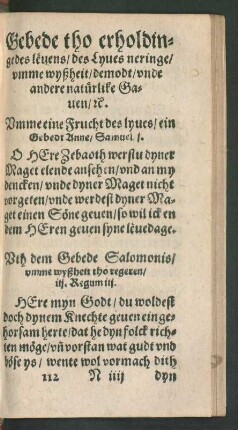 Gebede tho erholdin-
gedes leuens/ des Lyues neringe/
vmme wyßheit/ demodt/ vnde
andere natürlike Ga-
uen/ ꝛc.
Vmme eine Frucht des lyues/ ein
Gebedt Anne/ Samuel j.
O HEre Zebaoth werstu dyner
Maget elende ansehen/ vnd an my
dencken/ vnde dyner Maget nicht
vorgeten/ vnde werdest dyner Ma-
get einen Söne geuen/ so wil ick en
dem HEren geuen syne leuedage.
Vth dem Gebede Salomonis/
vmme wyßheit tho regeren/
iij. Regum iij.
HEre myn Godt/ du woldest
doch dynem Knechte geuen einge-
horsam herte/ dat he dyn folck rich-
ten möge/ vñ vorstan wat gudt vnd
böse ys/ wente wol vormach dith
112 N iiij dyn